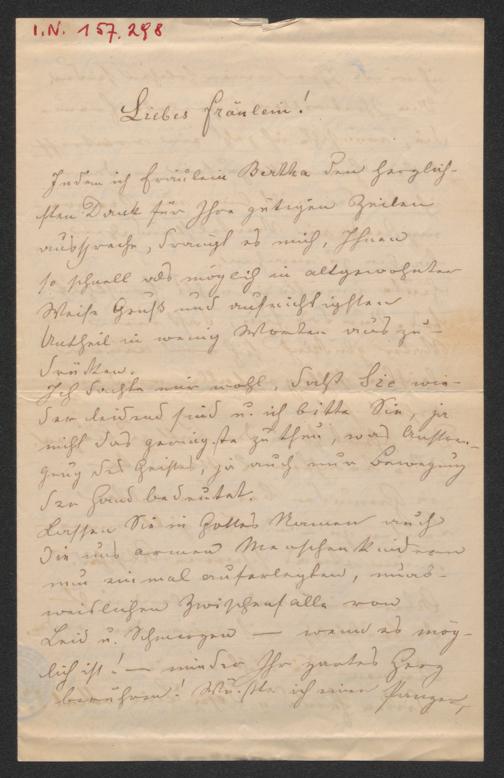 I.N. 157.298
Liebes Fräulein!
Indem ich Fräulein Bertha den herzlich-
sten Dank für Ihre gütigen Zeilen
ausspreche, drängt es mich, Ihnen
so schnell als möglich in altgewohnter
Weise Gruß und aufrichtigsten
Antheil in wenig Worten auszu-
drücken.
Ich dachte mir wohl, daß Sie wie-
der leidend sind u. ich bitte Sie, ja
nicht das geringste zu thun, was Anstren-
gung des Geistes, ja auch nur Bewegung
der Hand bedeutet.
Lassen Sie in Gottes Namen auch
die uns armen Menschenkindern
nun einmal auferlegten, unaus-
weichlichen Zwischenfälle von
Leid u. Schmerzen — wenn es mög-
lich ist! — minder Ihr zartes Herz
berühren! Wüßte ich einen Panzer,